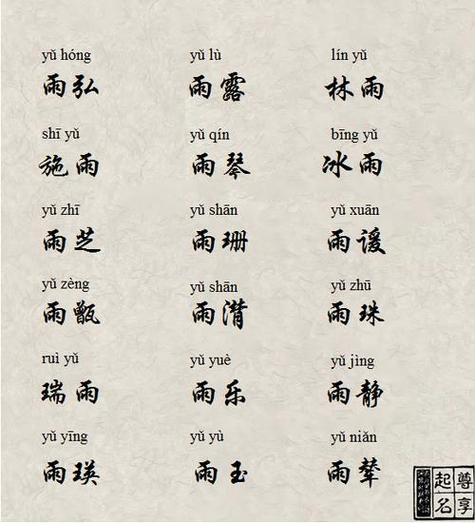 yǔ hóng yǔ lù lín yǔ
雨弘 雨露 林雨
shī yǔ yǔ qín bīng yǔ
施雨 雨琴 冰雨
yǔ zhī yǔ shān yǔ xuān
雨芝 雨珊 雨谖
yǔ zèng yǔ shān yǔ zhū
雨甑 雨潸 雨珠
ruì yǔ yǔ yuè yǔ jìng
瑞雨 雨乐 雨静
yǔ yīng yǔ yù yǔ niǎn
雨瑛 雨玉 雨辇
尊享
起名